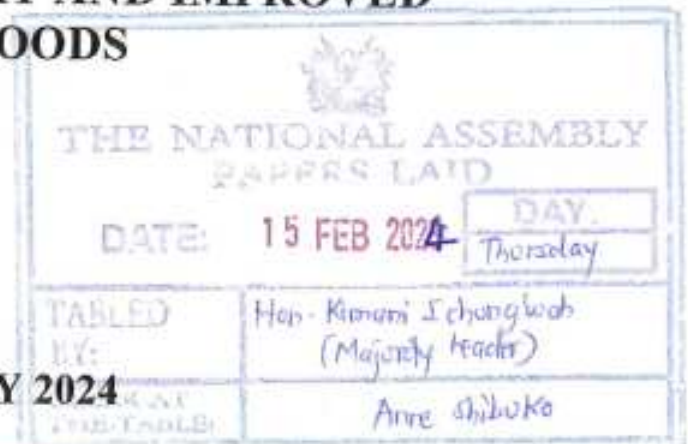 AND IMPROVED
OODS
THE NATIONAL ASSEMBLY
PAPERS LAID
DATE: 15 FEB 2024
DAY.
Thursday
TABLED
BY:
Hon. Kimani Ichungwah
(Majority Leader)
Y 2024
THE-TABLE:
Anne Shibuko